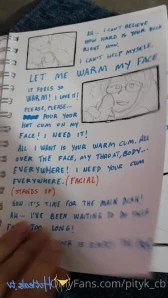 AH... I CAN'T BELIEVE
HOW HARD IS YOUR DICK
RIGHT NOW
I CAN'T HELP MYSELF.
LET ME WARM MY FACE
IT FEELS SO
WARM! I LOVE IT!
PLEASE, PLEASE...
POUR YOUR
HOT CUM ON MY
FACE! I NEED IT!
ALL I WANT IS YOUR WARM CUM, ALL
OVER THE FACE, MY THROAT, BODY...
EVERYWHERE! I NEED YOUR CUM
EVERYWHERE. (FACIAL)
(STANDS UP)
NOW IT'S TIME FOR THE MAIN
AH - I'VE BEEN WAITING TO DO
TOO LONG!
Fans.com/pityk_ch